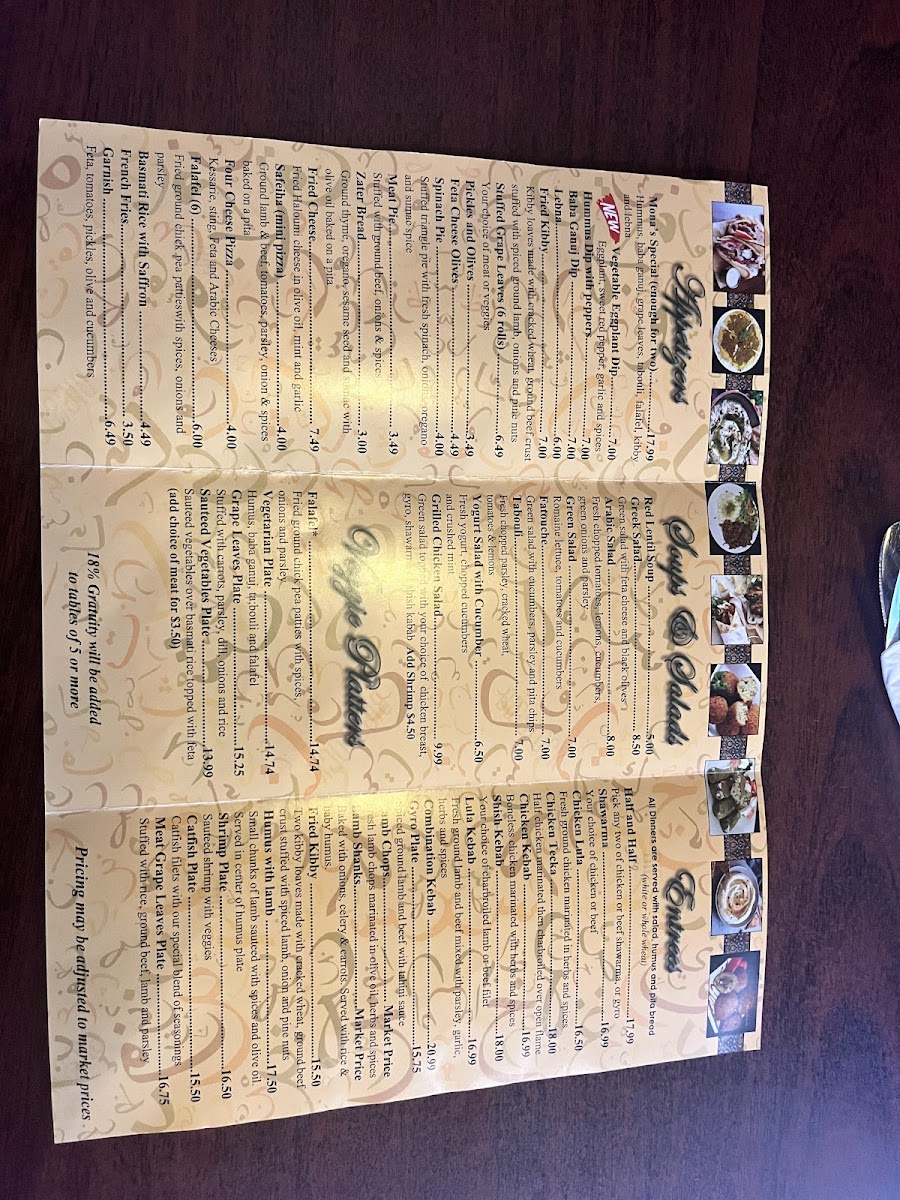 Appetizers
Mona's Special (enough for two) ..........17.99
Hummus, baba ganuj, grape leaves, tabouli, falafel, kibby
and lebna
NEW Vegetable Eggplant Dip..........7.00
Eggplant, sweet red pepper, garlic and spices
Hummus Dip with peppers..........7.00
Baba Ganuj Dip..........7.00
Lebna..........6.00
Fried Kibby..........7.00
Kibby loaves made with cracked wheat, ground beef crust
stuffed with spiced ground lamb, onions and pine nuts
Stuffed Grape Leaves (6 rolls)..........6.49
Your choice of meat or veggies
Pickles and Olives..........3.49
Feta Cheese Olives..........4.49
Spinach Pie..........4.00
Stuffed triangle pie with fresh spinach, onion, oregano
and sumac spice
Meat Pie..........3.49
Stuffed with ground beef, onions & spices
Zater Bread..........3.00
Ground thyme, oregano, sesame seed and with
olive oil baked on a pita
Fried Cheese..........7.49
Fried Haloumi cheese in olive oil, mint and garlic
Safeiha (mini pizza)..........4.00
Ground lamb & beef, tomatoes, parsley, onion & spices
baked on a pita
Four Cheese Pizza..........4.00
Kessarie, string, Feta and Arabic Cheeses
Falafel (6)..........6.00
Fried ground chick pea pattieswith spices, onions and
parsley
Basmati Rice with Saffron..........4.49
French Fries..........3.50
Garnish..........6.49
Feta, tomatoes, pickles, olive and cucumbers
Soups & Salads
Red Lentil Soup..........5.00
Greek Salad..........8.50
Green salad with feta cheese and black olives
Arabic Salad..........8.00
Fresh chopped tomatoes, lemons, cucumbers,
green onions and parsley
Green Salad..........7.00
Romaine lettuce, tomatoes and cucumbers
Fatouche..........7.00
Green salad with cucumbers, parsley and pita chips
Tabouli..........7.00
Fresh chopped parsley, cracked wheat,
tomatoes & lemons
Yogurt Salad with Cucumber..........6.50
Fresh yogurt, chopped cucumbers
and crushed mint
Grilled Chicken Salad..........9.99
Green salad to with your choice of chicken breast,
gyro, shawarm shish kabab Add Shrimp $4.50
Veggie Platters
Falafel*..........14.74
Fried ground chick pea patties with spices,
onions and parsley
Vegetarian Plate..........14.74
Humus, baba ganuj, ta,bouli and falafel
Grape Leaves Plate..........15.25
Stuffed with carrots, parsley, dill, onions and rice
Sauteed Vegetables Plate..........13.99
Sauteed vegetables over basmati rice topped with feta
(add choice of meat for $3.50)
18% Gratuity will be added
to tables of 5 or more
Entrees
All Dinners are served with salad, humus and pita bread
(white or whole wheat)
Half and Half..........17.99
Pick any two of chicken or beef shawarma, or gyro
Shawarma..........16.99
Your choice of chicken or beef
Chicken Lula..........16.50
Fresh ground chicken marinated in herbs and spices
Chicken Tecka..........18.00
Half chicken marinated then charbroiled over open flame
Chicken Kebab..........16.99
Boneless chicken marinated with herbs and spices
Shish Kebab..........18.00
Your choice of charbroiled lamb or beef filet
Lula Kebab..........16.99
Fresh ground lamb and beef mixed with parsley, garlic,
herbs and spices
Combination Kebab..........20.99
Gyro Plate..........15.75
iced ground lamb and beef with tahini sauce
amb Chops..........Market Price
esh lamb chops marinated in olive oil, herbs and spices
amb Shanks..........Market Price
Baked with onions, celery & carrots. Served with rice &
baby humus.
Fried Kibby..........15.50
Two kibby loaves made with cracked wheat, ground beef
crust stuffed with spiced lamb, onion and pine nuts
Humus with lamb..........17.50
Small chunks of lamb sauteed with spices and olive oil.
Served in center of humus plate
Shrimp Plate..........16.50
Sauteed shrimp with veggies
Catfish Plate..........15.50
Catfish filets with our special blend of seasonings
Meat Grape Leaves Plate..........16.75
Stuffed with rice, ground beef, lamb and parsley
Pricing may be adjusted to market prices.